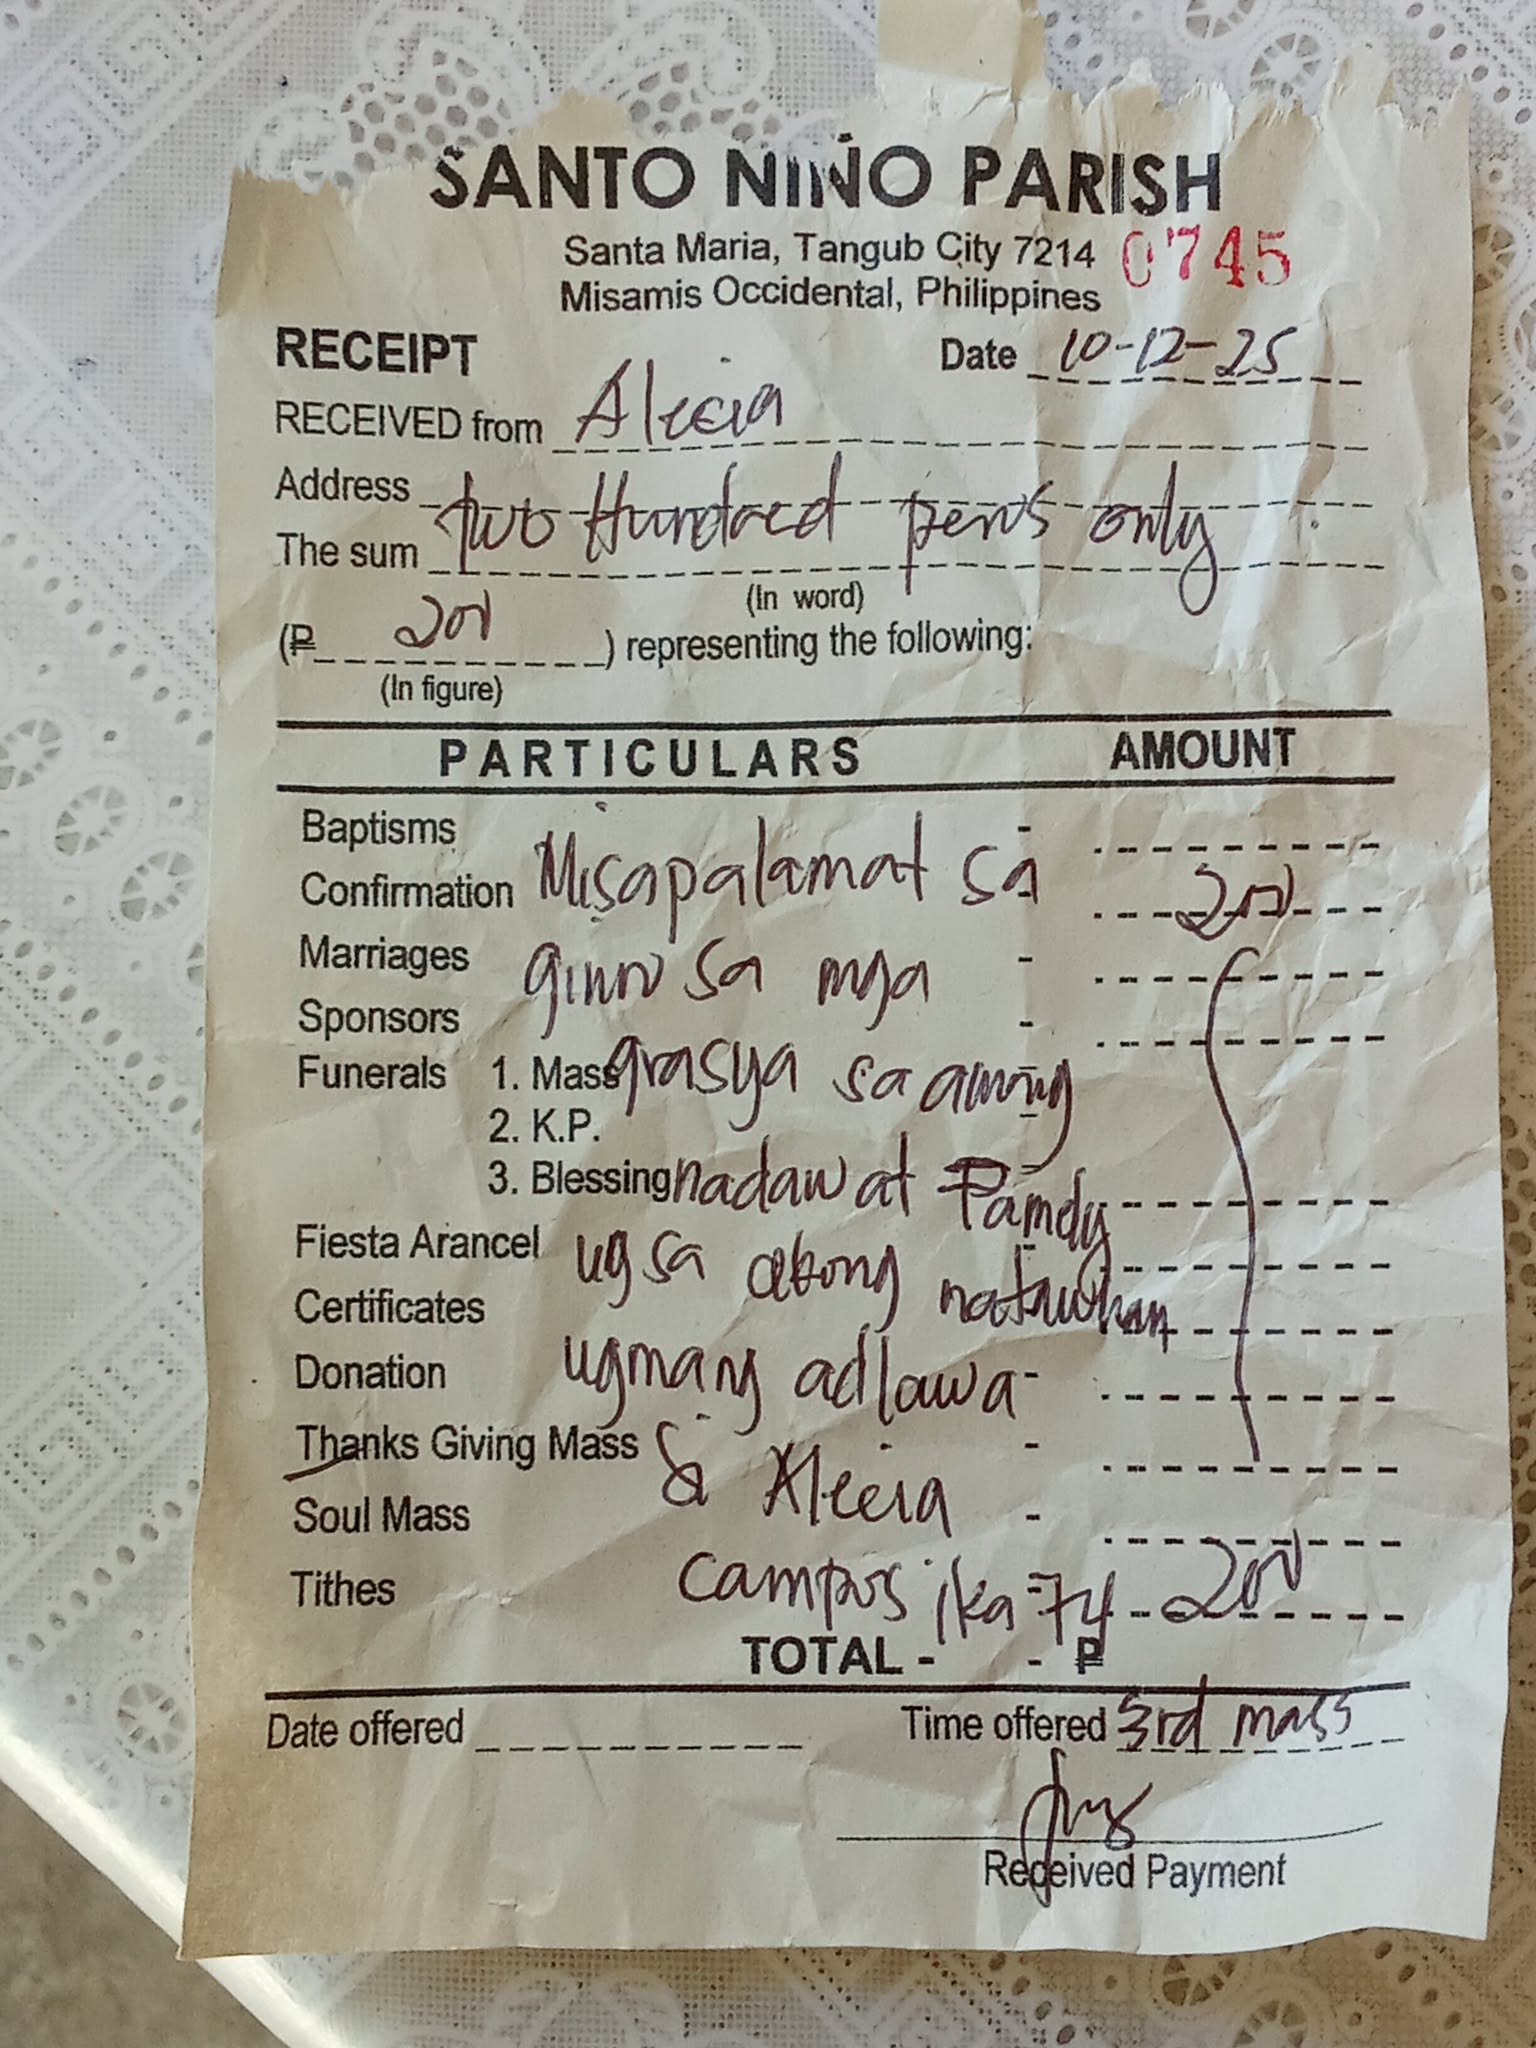 SANTO NIÑO PARISH
Santa Maria, Tangub City 7214 0745
Misamis Occidental, Philippines
RECEIPT Date 10-12-25
RECEIVED from Alecia
Address
The sum two Hundred pesos only
(In word)
(₱ 200 ) representing the following:
(In figure)
PARTICULARS AMOUNT
Baptisms -
Confirmation Misapalamat sa - 200
Marriages ginoo sa mga -
Sponsors -
Funerals 1. Mass grasya sa among -
2. K.P. -
3. Blessing nadawat Pamily -
Fiesta Arancel ug sa akong natawhan -
Certificates
Donation ugmang adlawa -
Thanks Giving Mass si Alecia -
Soul Mass -
Tithes Campos ika-74 - 200
TOTAL - - ₱
Date offered Time offered 3rd mass
Received Payment